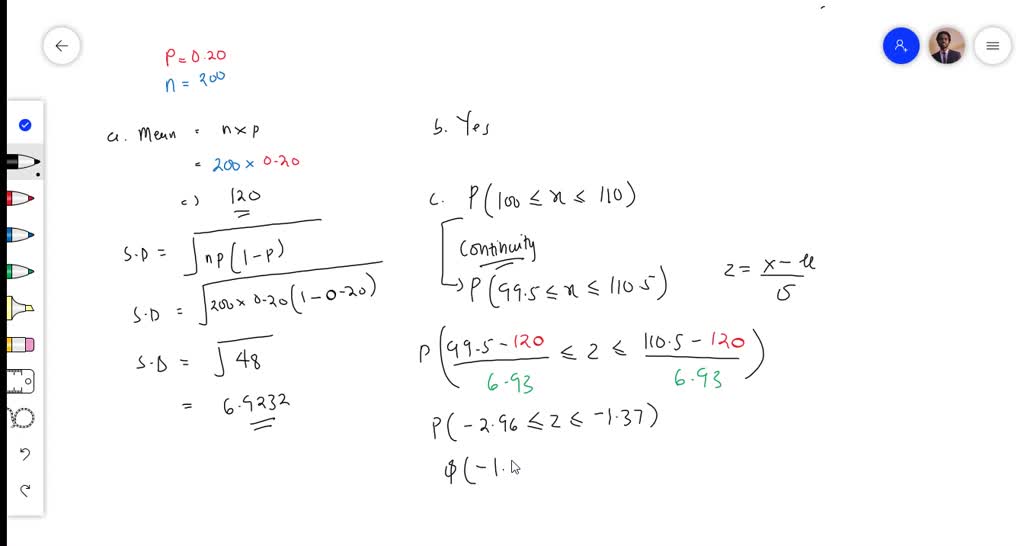 P=0.20
n = 200
a. Mean = n×p
= 200 × 0.20
=) 120
S.D = √np(1-p)
S.D = √200 × 0.20(1-0.20)
S.D = √48
= 6.9232
b. Yes
c. P(100 ≤ x ≤ 110)
Continuity
P(99.5 ≤ x ≤ 110.5)
z = x - μ / σ
P(99.5 - 120 / 6.93 ≤ z ≤ 110.5 - 120 / 6.93)
P(-2.96 ≤ z ≤ -1.37)
φ(-1.